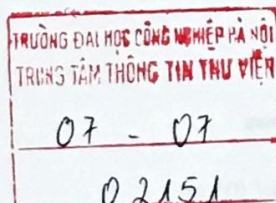 TRƯỜNG ĐẠI HỌC CÔNG NGHIỆP HÀ NỘI
TRUNG TÂM THÔNG TIN THƯ VIỆN
07 - 07
02151